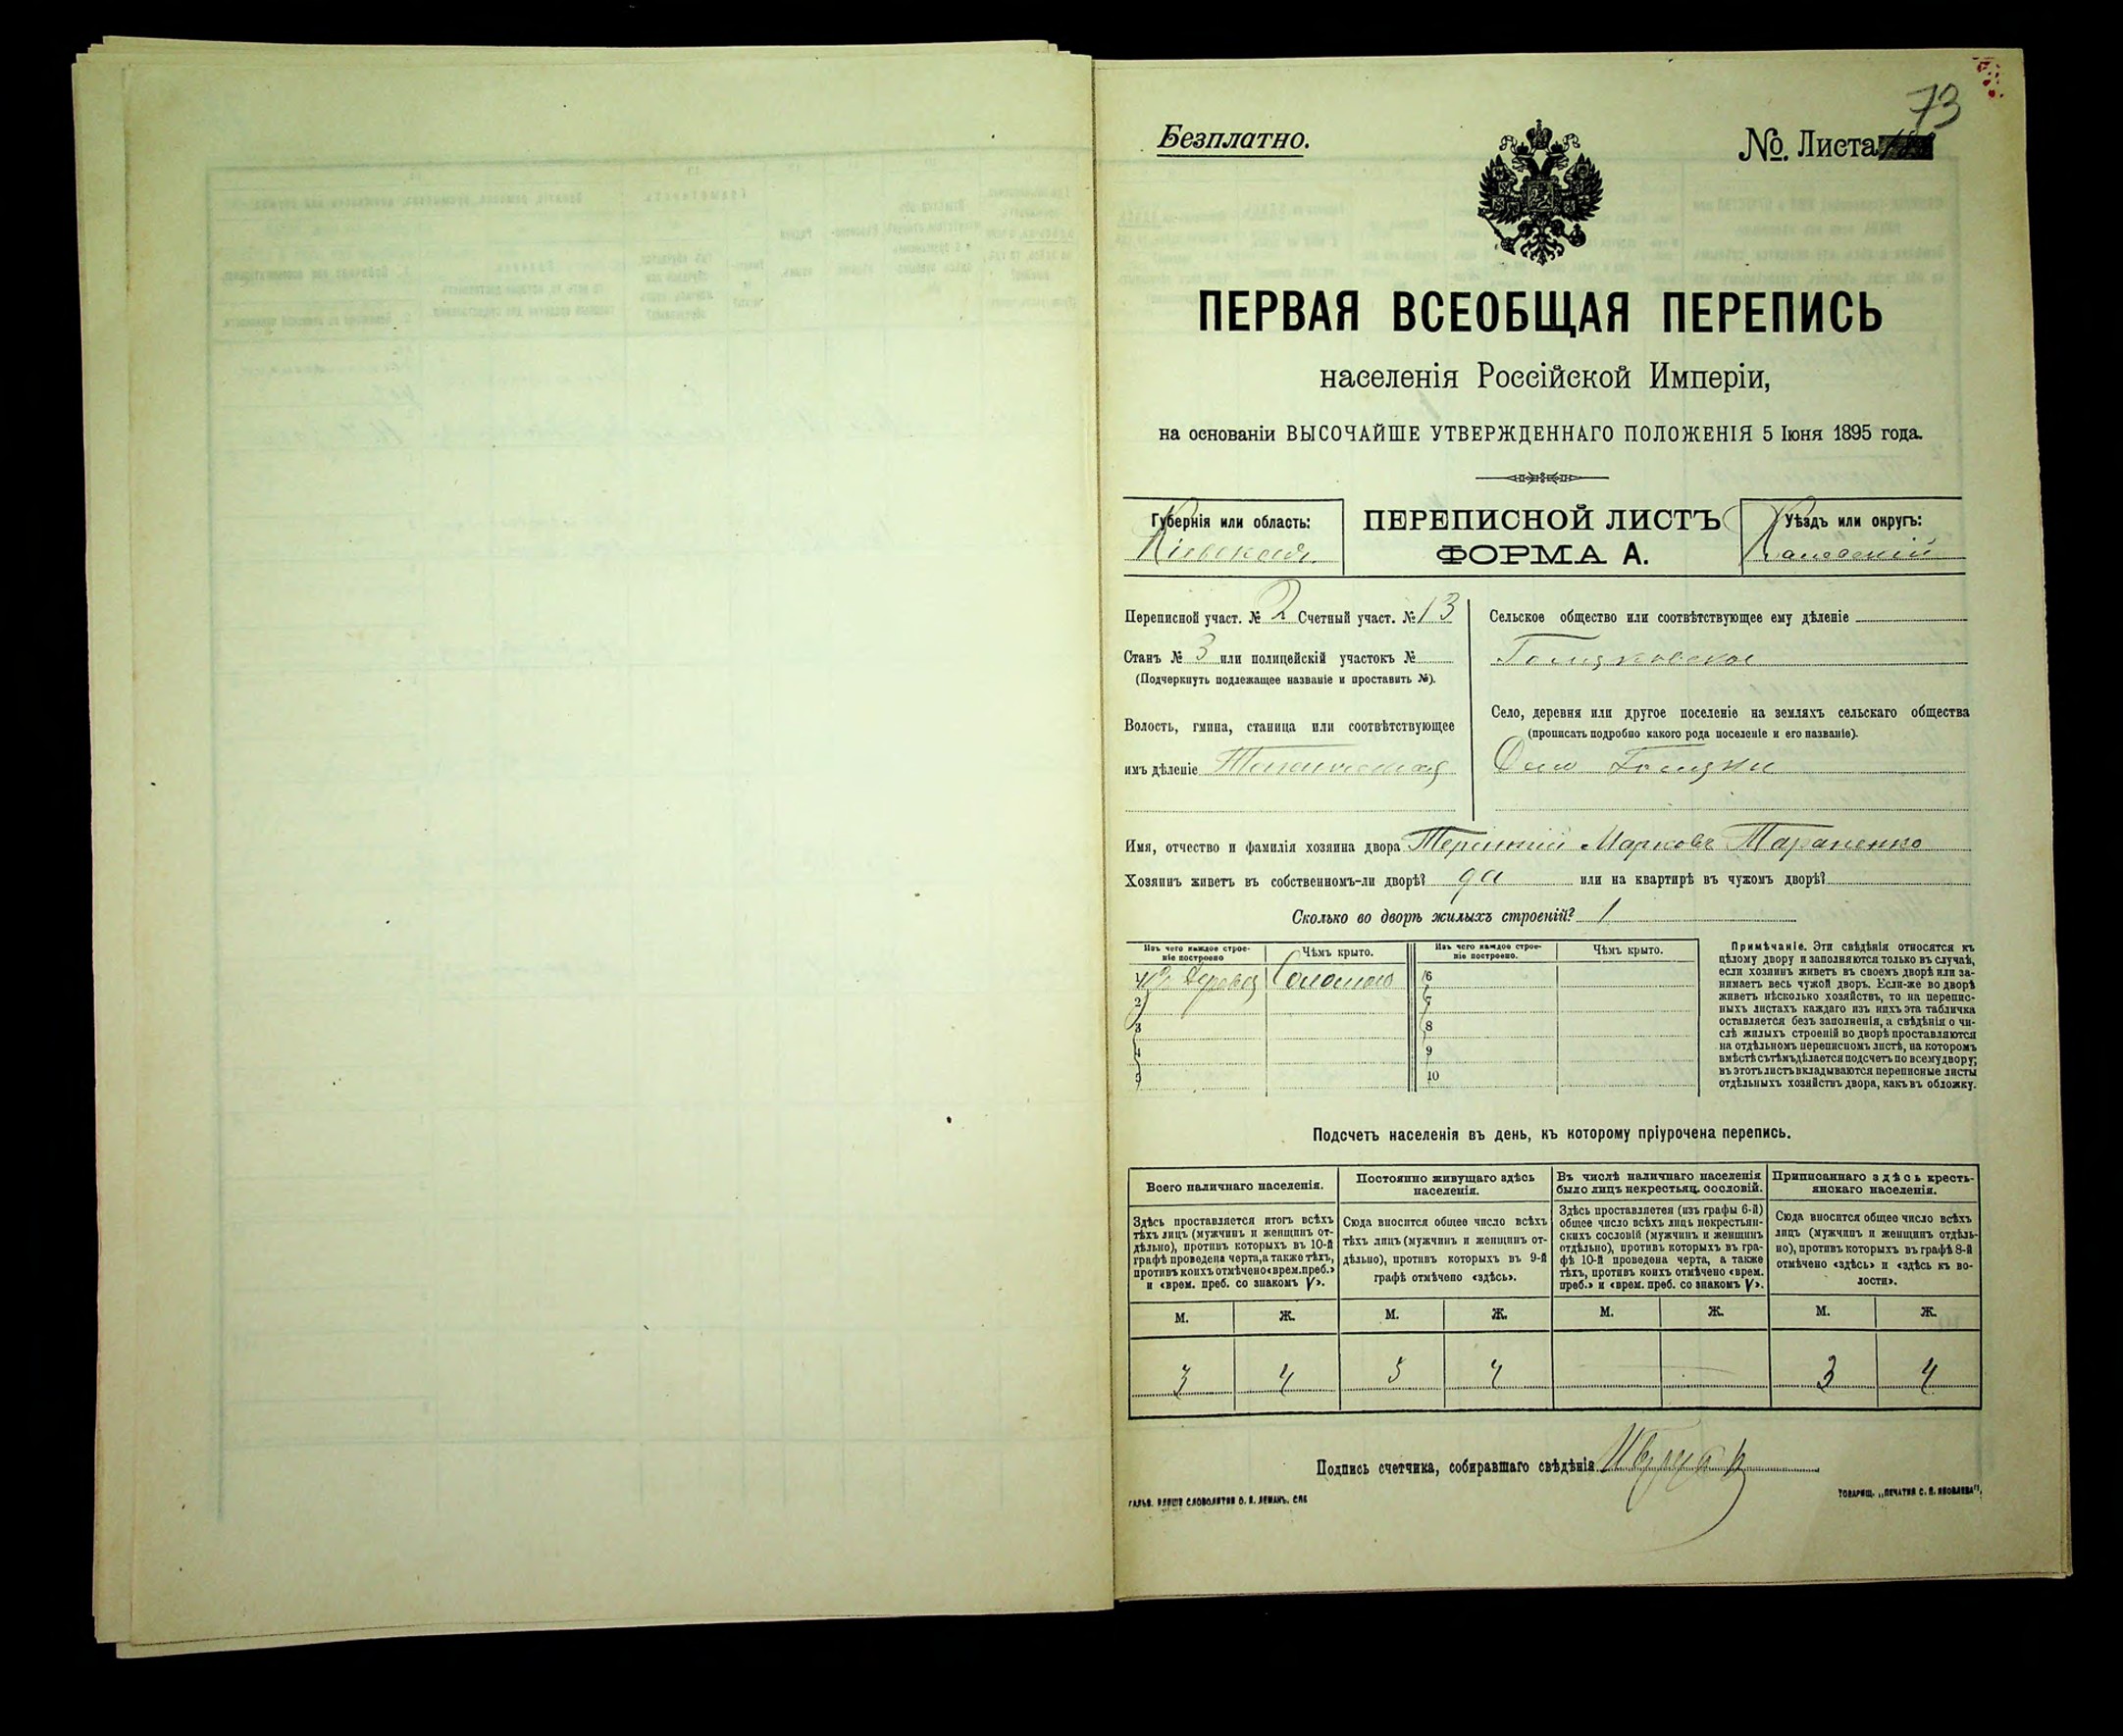 73
Безплатно.
№. Листа
ПЕРВАЯ ВСЕОБЩАЯ ПЕРЕПИСЬ
населенія Россійской Имперіи,
на основаніи ВЫСОЧАЙШЕ УТВЕРЖДЕННАГО ПОЛОЖЕНІЯ 5 Іюня 1895 года.
Губернія или область:
Кіевская
ПЕРЕПИСНОЙ ЛИСТЪ
ФОРМА А.
Уѣздъ или округъ:
Каневскій
Переписной участ. № 2 Счетный участ. № 13
Станъ № 3 или полицейскій участокъ №
(Подчеркнуть подлежащее названіе и проставить №).
Волость, гмина, станица или соотвѣтствующее
имъ дѣленіе
Сельское общество или соотвѣтствующее ему дѣленіе
Село, деревня или другое поселеніе на земляхъ сельскаго общества
(прописать подробно какого рода поселеніе и его названіе).
Село
Имя, отчество и фамилія хозяина двора Терентій Марковъ Тараненко
Хозяинъ живетъ въ собственномъ-ли дворѣ? да или на квартирѣ въ чужомъ дворѣ?
Сколько во дворѣ жилыхъ строеній? 1
Изъ чего каждое строе-
ніе построено
Чѣмъ крыто.
Изъ чего каждое строе-
ніе построено.
Чѣмъ крыто.
1 Дерева Соломою
2
3
4
5
6
7
8
9
10
Примѣчаніе. Эти свѣдѣнія относятся къ
цѣлому двору и заполняются только въ случаѣ,
если хозяинъ живетъ въ своемъ дворѣ или за-
нимаетъ весь чужой дворъ. Если-же во дворѣ
живетъ нѣсколько хозяйствъ, то на перепис-
ныхъ листахъ каждаго изъ нихъ эта табличка
оставляется безъ заполненія, а свѣдѣнія о чи-
слѣ жилыхъ строеній во дворѣ проставляются
на отдѣльномъ переписномъ листѣ, на которомъ
вмѣстѣ съ тѣмъ дѣлается подсчетъ по всему двору;
въ этотъ листъ вкладываются переписные листы
отдѣльныхъ хозяйствъ двора, какъ въ обложку.
Подсчетъ населенія въ день, къ которому пріурочена перепись.
Всего наличнаго населенія.
Здѣсь проставляется итогъ всѣхъ
тѣхъ лицъ (мужчинъ и женщинъ от-
дѣльно), противъ которыхъ въ 10-й
графѣ проведена черта, а также тѣхъ,
противъ коихъ отмѣчено «врем. преб.»
и «врем. преб. со знакомъ V».
Постоянно живущаго здѣсь
населенія.
Сюда вносится общее число всѣхъ
тѣхъ лицъ (мужчинъ и женщинъ от-
дѣльно), противъ которыхъ въ 9-й
графѣ отмѣчено «здѣсь».
Въ числѣ наличнаго населенія
было лицъ некрестьян. сословій.
Здѣсь проставляется (изъ графы 6-й)
общее число всѣхъ лицъ некрестьян-
скихъ сословій (мужчинъ и женщинъ
отдѣльно), противъ которыхъ въ гра-
фѣ 10-й проведена черта, а также
тѣхъ, противъ коихъ отмѣчено «врем.
преб.» и «врем. преб. со знакомъ V».
Приписаннаго здѣсь кресть-
янскаго населенія.
Сюда вносится общее число всѣхъ
лицъ (мужчинъ и женщинъ отдѣль-
но), противъ которыхъ въ графѣ 8-й
отмѣчено «здѣсь» и «здѣсь къ во-
лости».
М. Ж. М. Ж. М. Ж. М. Ж.
3 4 3 4 3 4
Подпись счетчика, собиравшаго свѣдѣнія
ГАЛЬВ. КЛИШЕ СЛОВОЛИТНИ О. И. ЛЕМАНЪ. СПБ
ТОВАРИЩ. „ПЕЧАТНЯ С. П. ЯКОВЛЕВА".